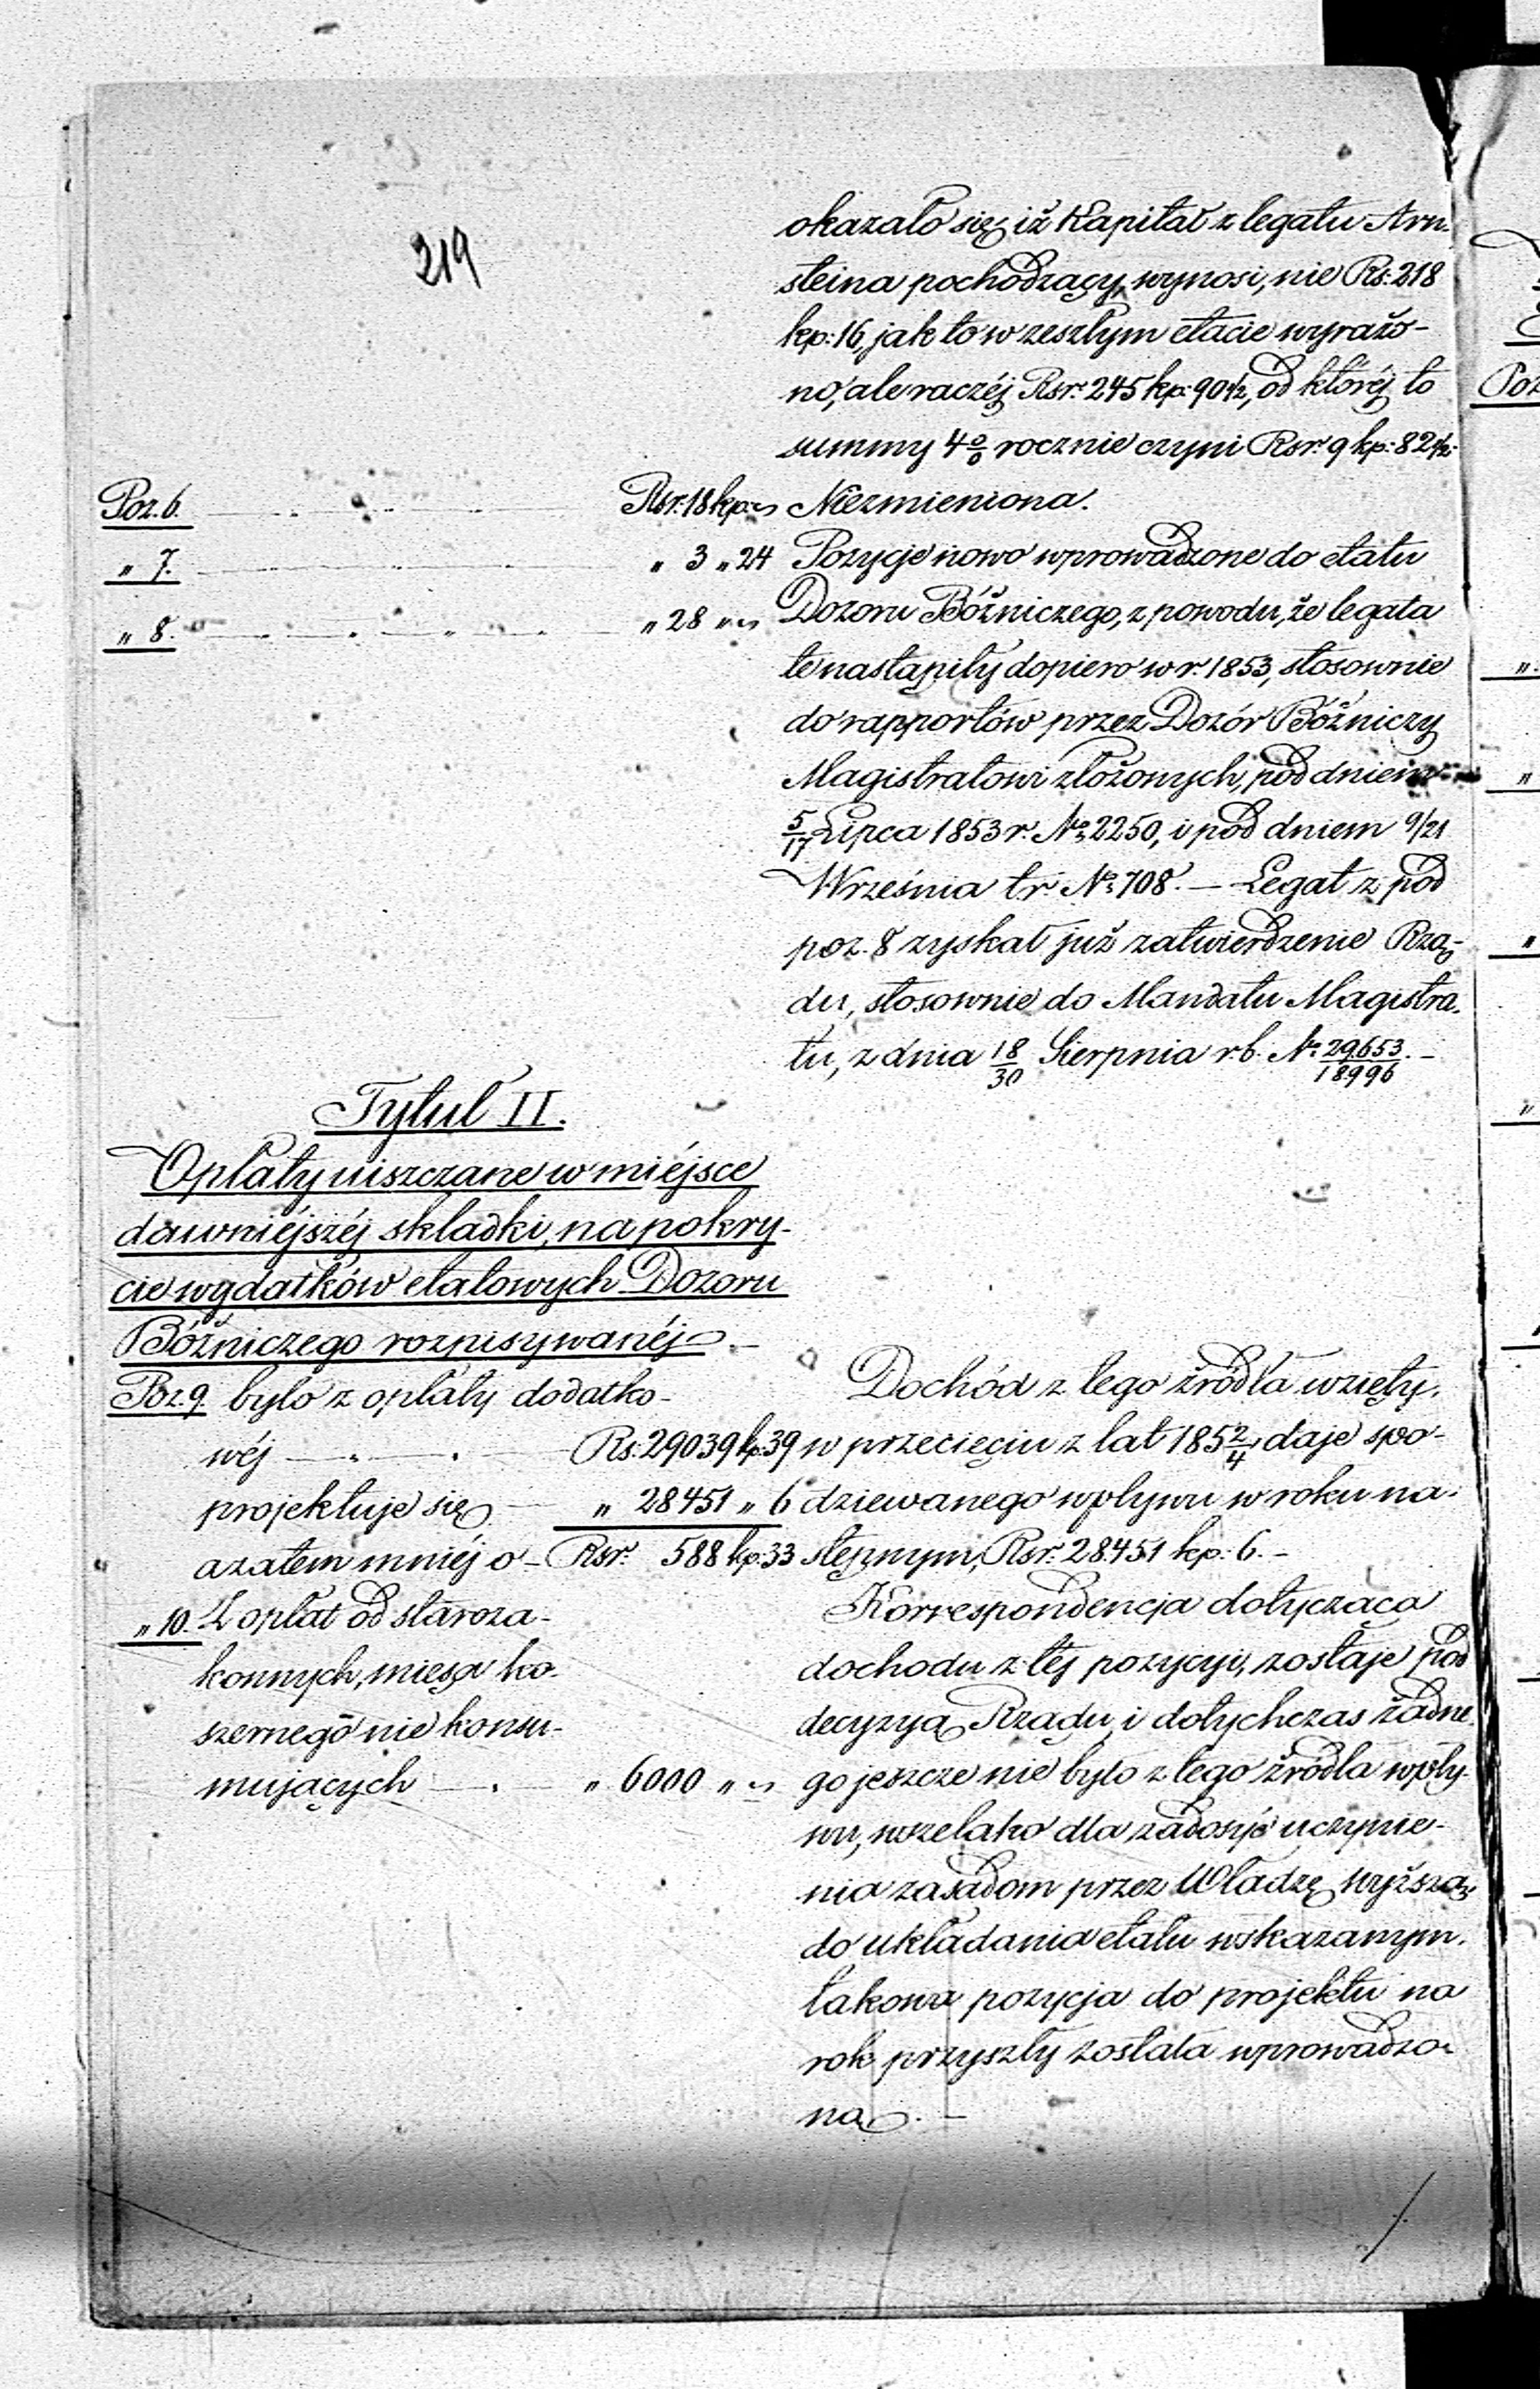 219
okazało się, iż Kapitał z legatu Arn-
steina pochodzący, wynosi, nie Rs: 218
kp: 16, jak to w zeszłym etacie wyrażo-
no, ale raczéj Rsr: 245 kp: 90 1/2, od któréj to
summy 4 % rocznie czyni Rsr: 9 kp: 82 1/2.
Poz. 6. Rsr: 18 kp: " Niezmieniona.
" 7. " 3 " 24 Pozycje nowo wprowadzone do etatu
" 8. " 28 " " Dozoru Bóżniczego, z powodu, że legata
te nastąpiły dopiero w r. 1853, stosownie
do rapportów przez Dozór Bóżniczy
Magistratowi złożonych, pod dniem
5/17 Lipca 1853 r. No 2250, i pod dniem 9/21
Września t.r. No 708. — Legat z pod
poz. 8 zyskał już zatwierdzenie Rzą-
du, stosownie do Mandatu Magistra-
tu, z dnia 18/30 Sierpnia r.b. No 29653/18996. —
Tytuł II.
Opłaty uiszczane w miéjsce
dawniéjszéj składki, na pokry-
cie wydatków etatowych Dozoru
Bóżniczego rozpisywanéj. —
Poz. 9. było z opłaty dodatko-
wéj — Rs: 29039 kp: 39
projektuje się — " 28451 " 6
azatem mniéj o — Rsr: 588 kp: 33
Dochód z tego źródła wzięty,
w przecięciu z lat 185 2/4, daje spo-
dziewanego wpływu w roku na-
stępnym, Rsr: 28451 kp: 6. —
" 10. Z opłat od staroza-
konnych, mięsa ko-
szernego nie konsu-
mujących — " 6000 " "
Korrespondencja dotycząca
dochodu z téj pozycyi, zostaje pod
decyzyą Rządu i dotychczas żadne-
go jeszcze nie było z tego źródła wpły-
wu, wszelako dla zadosyć uczynie-
nia zasadom przez Władzę wyższą
do układania etatu wskazanym,
takowa pozycja do projektu na
rok przyszły została wprowadzo-
na. —